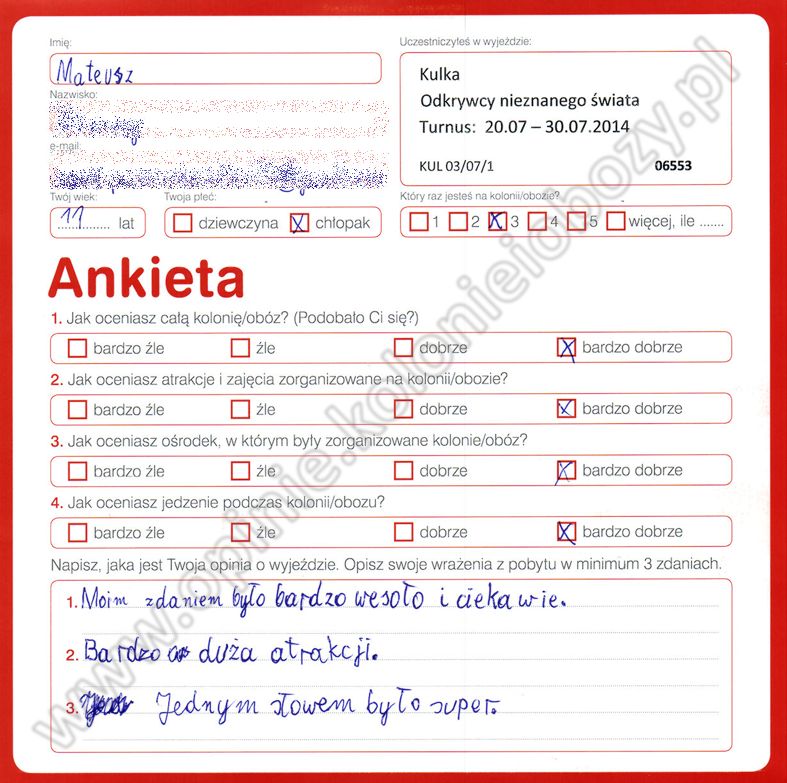 Imię:
Uczestniczyłeś w wyjeździe:
Mateusz
Kulka
Nazwisko:
Odkrywcy nieznanego świata
Turnus: 20.07 – 30.07.2014
e-mail:
KUL 03/07/1 06553
Twój wiek: Twoja płeć: Który raz jesteś na kolonii/obozie?
11 lat dziewczyna X chłopak 1 2 X 3 4 5 więcej, ile .......
Ankieta
1. Jak oceniasz całą kolonię/obóz? (Podobało Ci się?)
bardzo źle źle dobrze X bardzo dobrze
2. Jak oceniasz atrakcje i zajęcia zorganizowane na kolonii/obozie?
bardzo źle źle dobrze X bardzo dobrze
3. Jak oceniasz ośrodek, w którym były zorganizowane kolonie/obóz?
bardzo źle źle dobrze X bardzo dobrze
4. Jak oceniasz jedzenie podczas kolonii/obozu?
bardzo źle źle dobrze X bardzo dobrze
Napisz, jaka jest Twoja opinia o wyjeździe. Opisz swoje wrażenia z pobytu w minimum 3 zdaniach.
1. Moim zdaniem było bardzo wesoło i ciekawie.
2. Bardzo duża atrakcji.
3. Jednym słowem było super.
www.opinie.kolonieiobozy.pl